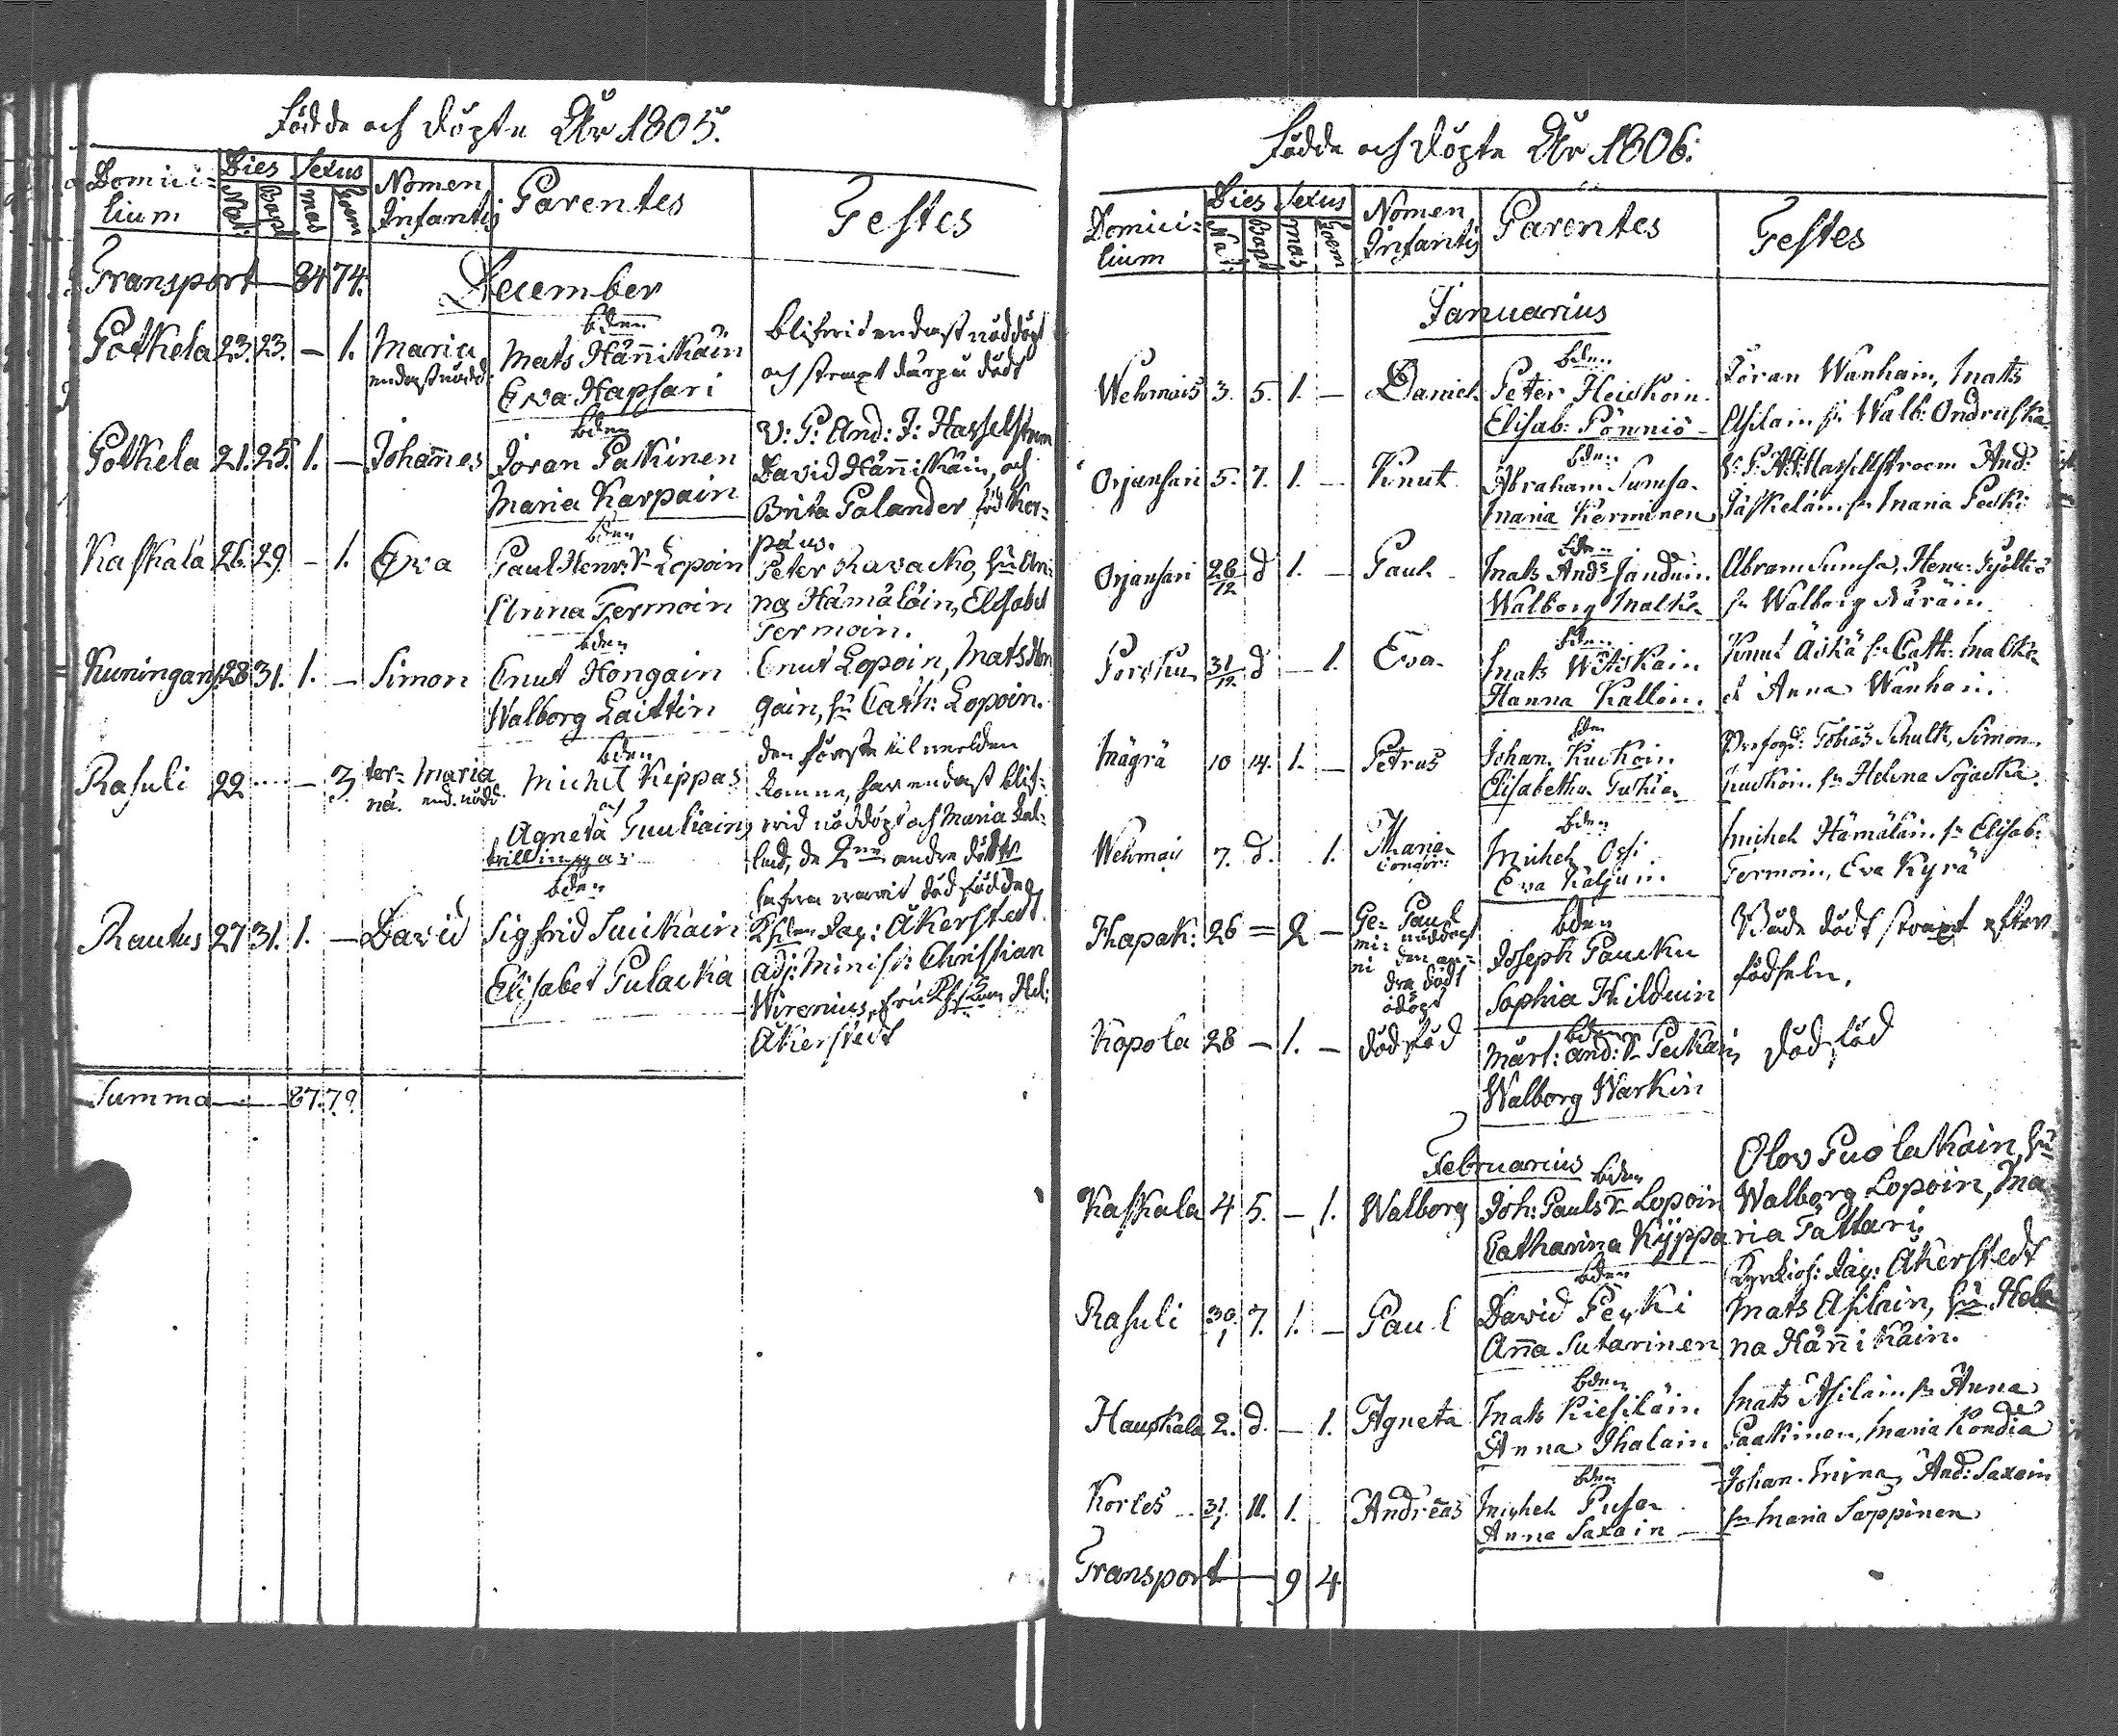 Födde och döpte År 1805.
Domici- Dies Sexus Nomen Parentes Testes
lium Nat: Bapt mas foem Infantis
Transport — 84 74.
December
Potkela 23. 23. — 1. Maria bden
endast nödd: Mats Hännikäin
Eva Hapsari
blifvit endast nöddöpt
och straxt därpå död
Potkela 21. 25. 1. — Johannes bden
Jöran Patkinen
Maria Karpain
V: P: And: J: Hasselström
David Hännikäin, och
Brita Palander född Ker-
päus.
Kaskala 26. 29. — 1. Eva bden
Paul Henr: Lopoin
Anna Termoin
Peter Ravacko, hu An-
na Hämäläin, Elisabet
Termoin.
Kuningan 28 31. 1. — Simon bden
Cnut Hongain
Walborg Laittin
Cnut Lopoin, Mats Hon
gain, hu Cath: Lopoin.
Rasuli 22 .... — 3. ter- Maria
næ. end. nödd. bden
Michel Kippas
och
Agneta Tuuliain
trillingar
den förste til werlden
komne, har endast blif-
wid nöddöpt och Maria kal-
lad, de 2ne andre
hafva warit död födde
Rautus 27 31. 1. — David bden
Sigfrid Suikain
Elisabet Pulacka
Jac: Åkerstedt
adj: Minist: Christian
Wirenius, fru Hel:
Åkerstedt
Summa — 87. 79.
Födde och döpte År 1806.
Domici- Dies Sexus Nomen Parentes Testes
lium Nat: Bapt mas foem Infantis
Januarius
Wehmais 3. 5. 1. — Daniel bden
Peter Heiskoin
Elisab: Pönniö
Jöran Wanhain, Mats
Asilain hu Walb: Ondruska
Orjansari 5. 7. 1. — Knut bden
Abraham Sumsa
Maria Kerminen
V: P: A: J: Hasselstroem And:
Jäskeläin hu Maria Pecki
Orjansari 28/12 d 1. — Paul bden
Mats Ands Janduin
Walborg Malka
Abram Sumsa, Henr: Pyöltiö
hu Walborg Näräin
31/12 d — 1. Eva bden
Mats Wötskäin
Hanna Kalloin.
Knut Äikä hu Cath: Malka
& Anna Wanhain.
Mägrä 10 14. 1. — Petrus bden
Johan Kuckoin
Elisabetha Tuckia
Tobias Schultz, Simon
Kuckoin hu Helena Sojacka
Wehmais 7. d. 1. Maria bden
Michel Orsi
Eva Kaljuin
Michel Hämäläin hu Elisab:
Termoin, Eva Kyrä
Hapak: 26 = 2 — Ge- Paul
mi- nöddöpt
ni den an-
dra dödt
odöpt
bden
Joseph Paucku
Sophia Hilduin
Både dödt straxt efter
födseln.
Kopola 28 — 1. — dödfödd bden
Mårt: And: Peckain
Walborg Warkin
dödfödd
Februarius
Kaskala 4 5. — 1. Walborg bden
Joh: Pauls Lopoin
Catharina Kyppa
Olov Puolakain, hu
Walborg Lopoin, Ma
ria Tattari
Rasuli 30/1 7. 1. — Paul bden
David Pecki
Anna Sutarinen
Jac: Åkerstedt
Mats Asilain, hu Hele
na Hännikäin.
Hauskala 2. d. — 1. Agneta bden
Mats Kiesiläin
Anna Ihalain
Mats Asilain hu Anna
Paakinen, Maria Kondia
Korles 31/1 11. 1. Andreas bden
Michel Pusa
Anna Saxain
Johan Mina, And: Saxain
hu Maria Sappinen
Transport — 9 4